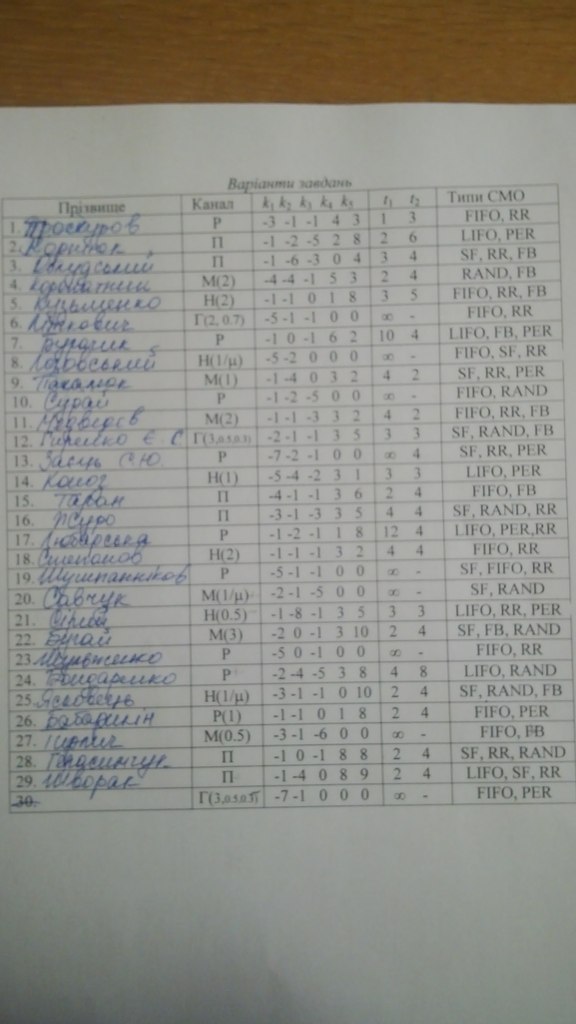 Варіанти завдань
Прізвище Канал k₁ k₂ k₃ k₄ k₅ t₁ t₂ Типи СМО
1. Проскуров Р -3 -1 -1 4 3 1 3 FIFO, RR
2. П -1 -2 -5 2 8 2 6 LIFO, PER
3. П -1 -6 -3 0 4 3 4 SF, RR, FB
4. М(2) -4 -4 -1 5 3 2 4 RAND, FB
5. Кузьменко Н(2) -1 -1 0 1 8 3 5 FIFO, RR, FB
6. Г(2, 0.7) -5 -1 -1 0 0 ∞ - FIFO, RR
7. Р -1 0 -1 6 2 10 4 LIFO, FB, PER
8. Н(1/μ) -5 -2 0 0 0 ∞ - FIFO, SF, RR
9. М(1) -1 -4 0 3 2 4 2 SF, RR, PER
10. Р -1 -2 -5 0 0 ∞ - FIFO, RAND
11. Медведєв М(2) -1 -1 -3 3 2 4 2 FIFO, RR, FB
12. Є. С Г(3,0.5,0.5) -2 -1 -1 3 5 3 3 SF, RAND, FB
13. Заєць С.Ю. Р -7 -2 -1 0 0 ∞ 4 SF, RR, PER
14. Н(1) -5 -4 -2 3 1 3 3 LIFO, PER
15. Таран П -4 -1 -1 3 6 2 4 FIFO, FB
16. П -3 -1 -3 3 5 4 4 SF, RAND, RR
17. Любарська Р -1 -2 -1 1 8 12 4 LIFO, PER,RR
18. Степанов Н(2) -1 -1 -1 3 2 4 4 FIFO, RR
19. Шушпанніков Р -5 -1 -1 0 0 ∞ - SF, FIFO, RR
20. Савчук М(1/μ) -2 -1 -5 0 0 ∞ - SF, RAND
21. Сірий Н(0.5) -1 -8 -1 3 5 3 3 LIFO, RR, PER
22. Бугай М(3) -2 0 -1 3 10 2 4 SF, FB, RAND
23. Р -5 0 -1 0 0 ∞ - FIFO, RR
24. Бондаренко Р -2 -4 -5 3 8 4 8 LIFO, RAND
25. Н(1/μ) -3 -1 -1 0 10 2 4 SF, RAND, FB
26. Р(1) -1 -1 0 1 8 2 4 FIFO, PER
27. М(0.5) -3 -1 -6 0 0 ∞ - FIFO, FB
28. Герасимчук П -1 0 -1 8 8 2 4 SF, RR, RAND
29. Шворак П -1 -4 0 8 9 2 4 LIFO, SF, RR
30. Г(3,0.5,0.5) -7 -1 0 0 0 ∞ - FIFO, PER